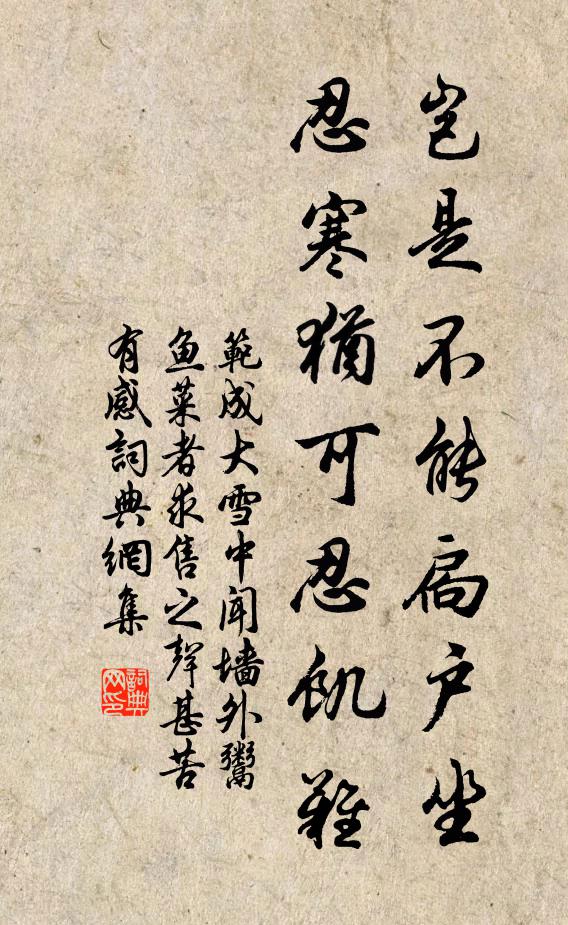 岂是不能扃户坐
忍寒猶可忍飢難
範成大雪中闻墙外鬻
鱼菜者求售之聲甚苦
有感詞典網集
詞典
网印